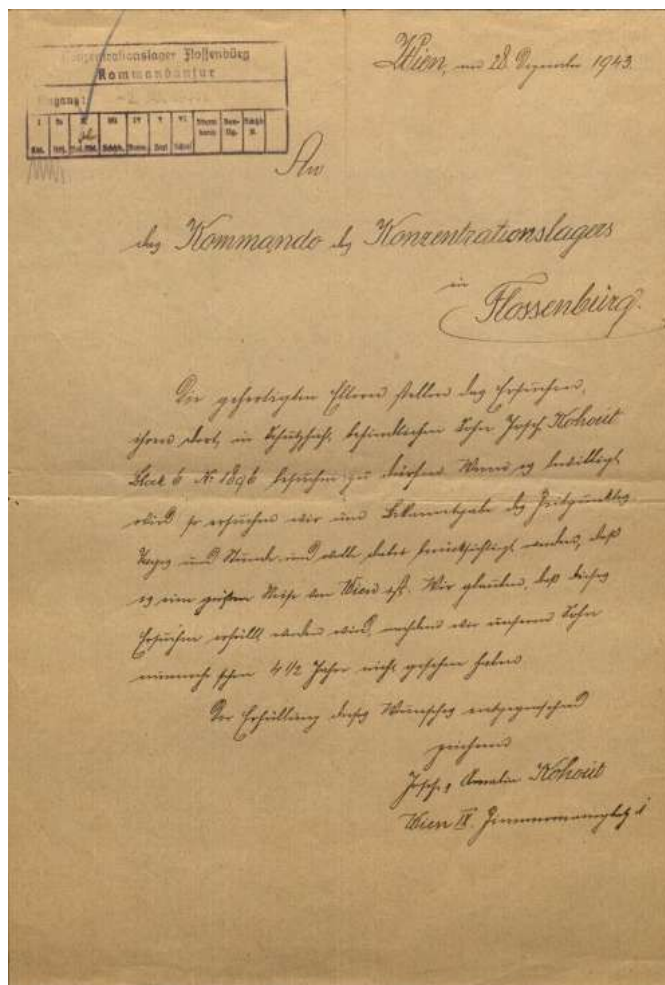 Konzentrationslager Flossenbürg
Kommandantur
Eingang:
Wien, am 28. Dezember 1943.
An
das Kommando des Konzentrationslagers
in
Flossenbürg.
Die gefertigten Eltern stellen das Ersuchen,
ihren dort in Schutzhaft befindlichen Sohn Josef Kohout
Block 6 Nr. 1896 besuchen zu dürfen. Wenn es bewilligt
wird so ersuchen wir um Bekanntgabe des Zeitpunktes
Tages und Stunde und wolle dabei berücksichtigt werden, daß
es eine Reise von Wien ist. Wir glauben, daß dieses
Ersuchen erfüllt werden wird, nachdem wir unseren Sohn
nunmehr schon 4 1/2 Jahre nicht gesehen haben
Der Erfüllung dieses Wunsches entgegensehend
zeichnen
Josef u Amalia Kohout
Wien IX. Zimmermannplatz 1